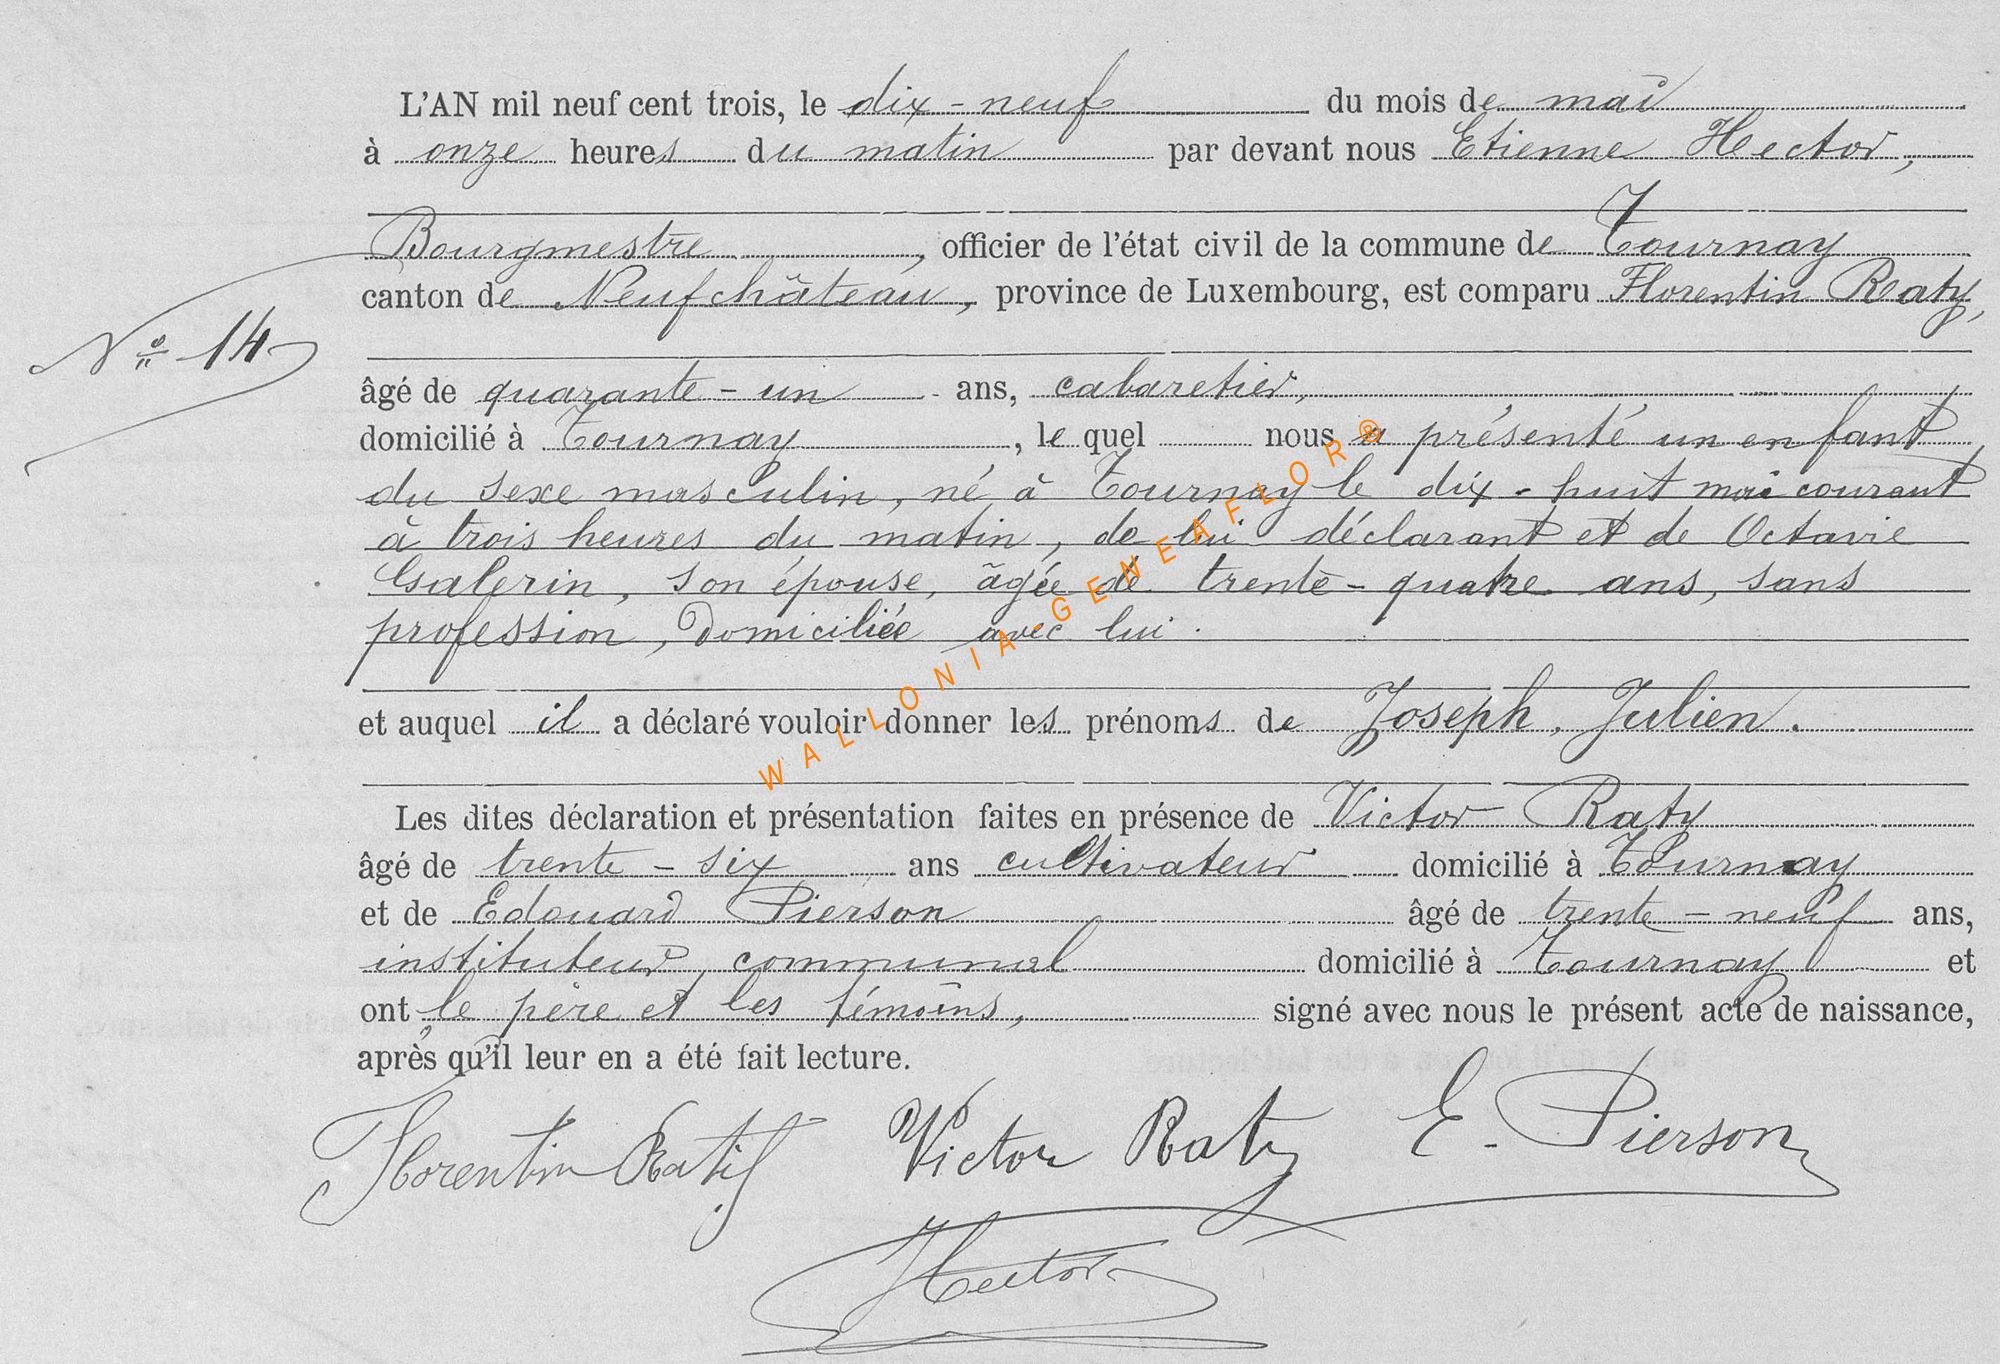 L'AN mil neuf cent trois, le dix-neuf du mois de mai
à onze heures du matin par devant nous Etienne Hector,
Bourgmestre, officier de l'état civil de la commune de Tournay
canton de Neufchâteau, province de Luxembourg, est comparu Florentin Raty,
N° 14
âgé de quarante-un ans, cabaretier,
domicilié à Tournay, le quel nous a présenté un enfant
du sexe masculin, né à Tournay le dix-huit mai courant
à trois heures du matin, de lui déclarant et de Octavie
Galerin, son épouse, âgée de trente-quatre ans, sans
profession, domiciliée avec lui.
et auquel il a déclaré vouloir donner les prénoms de Joseph, Julien.
Les dites déclaration et présentation faites en présence de Victor Raty
âgé de trente-six ans cultivateur domicilié à Tournay
et de Edouard Pierson âgé de trente-neuf ans,
instituteur communal domicilié à Tournay et
ont le père et les témoins, signé avec nous le présent acte de naissance,
après qu'il leur en a été fait lecture.
Florentin Raty Victor Raty E. Pierson
Hector
WALLONIA-GENEAFLOR®